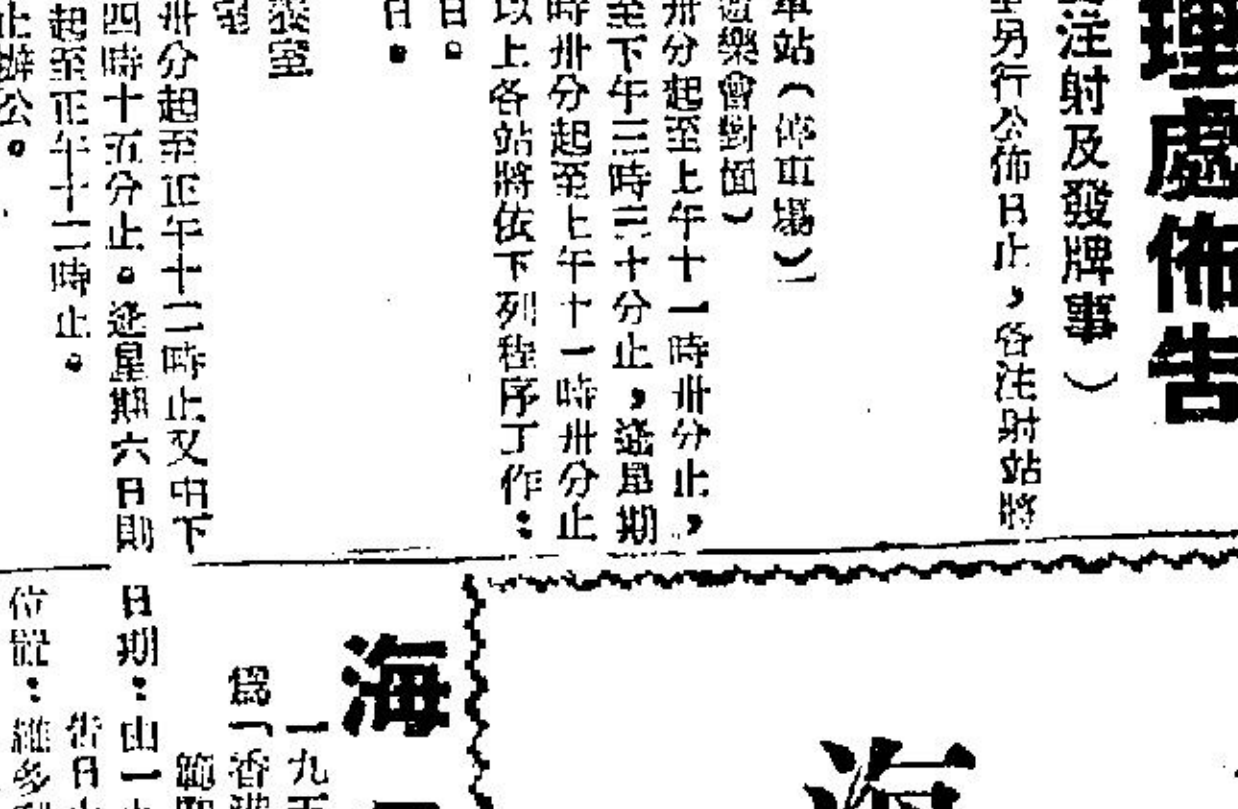 理處佈告
注射及發牌事）
另行公佈日止，各注射站將
車站（停車場）
遊樂會對面）
卅分起至上午十一時卅分止，
至下午三時三十分止，逢星期
時卅分起至上午十一時卅分止
以上各站將依下列程序工作：
日。
日。
室
卅分起至正午十二時止又由下
四時十五分止。逢星期六日則
起至正午十二時止。
止辦公。
海
海
一九五
爲「香港
範
日期：由一
告日
位置：維多利